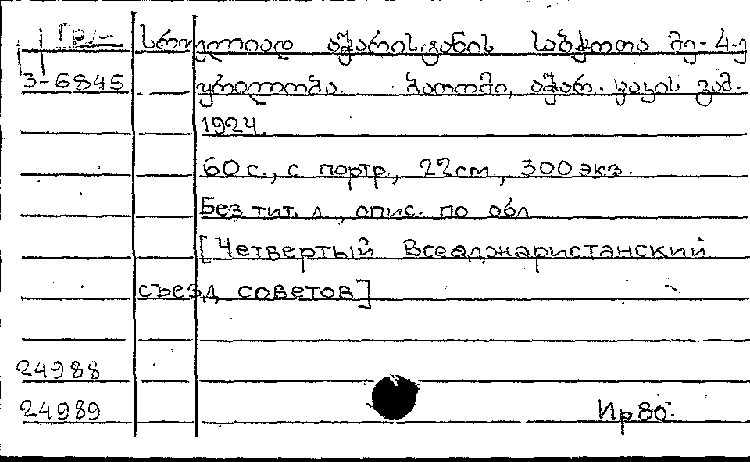 Гр/-
სრულიად აჭარისტანის საბჭოთა მე-4-ე
3-6845 ყრილობა. ბათომი, აჭარ. ცაკის გამ.
1924.
60 с., с портр., 22 см, 300 экз.
Без тит. л., опис. по обл
[Четвертый Всеаджаристанский
съезд советов]
24988
24989
Ир80.